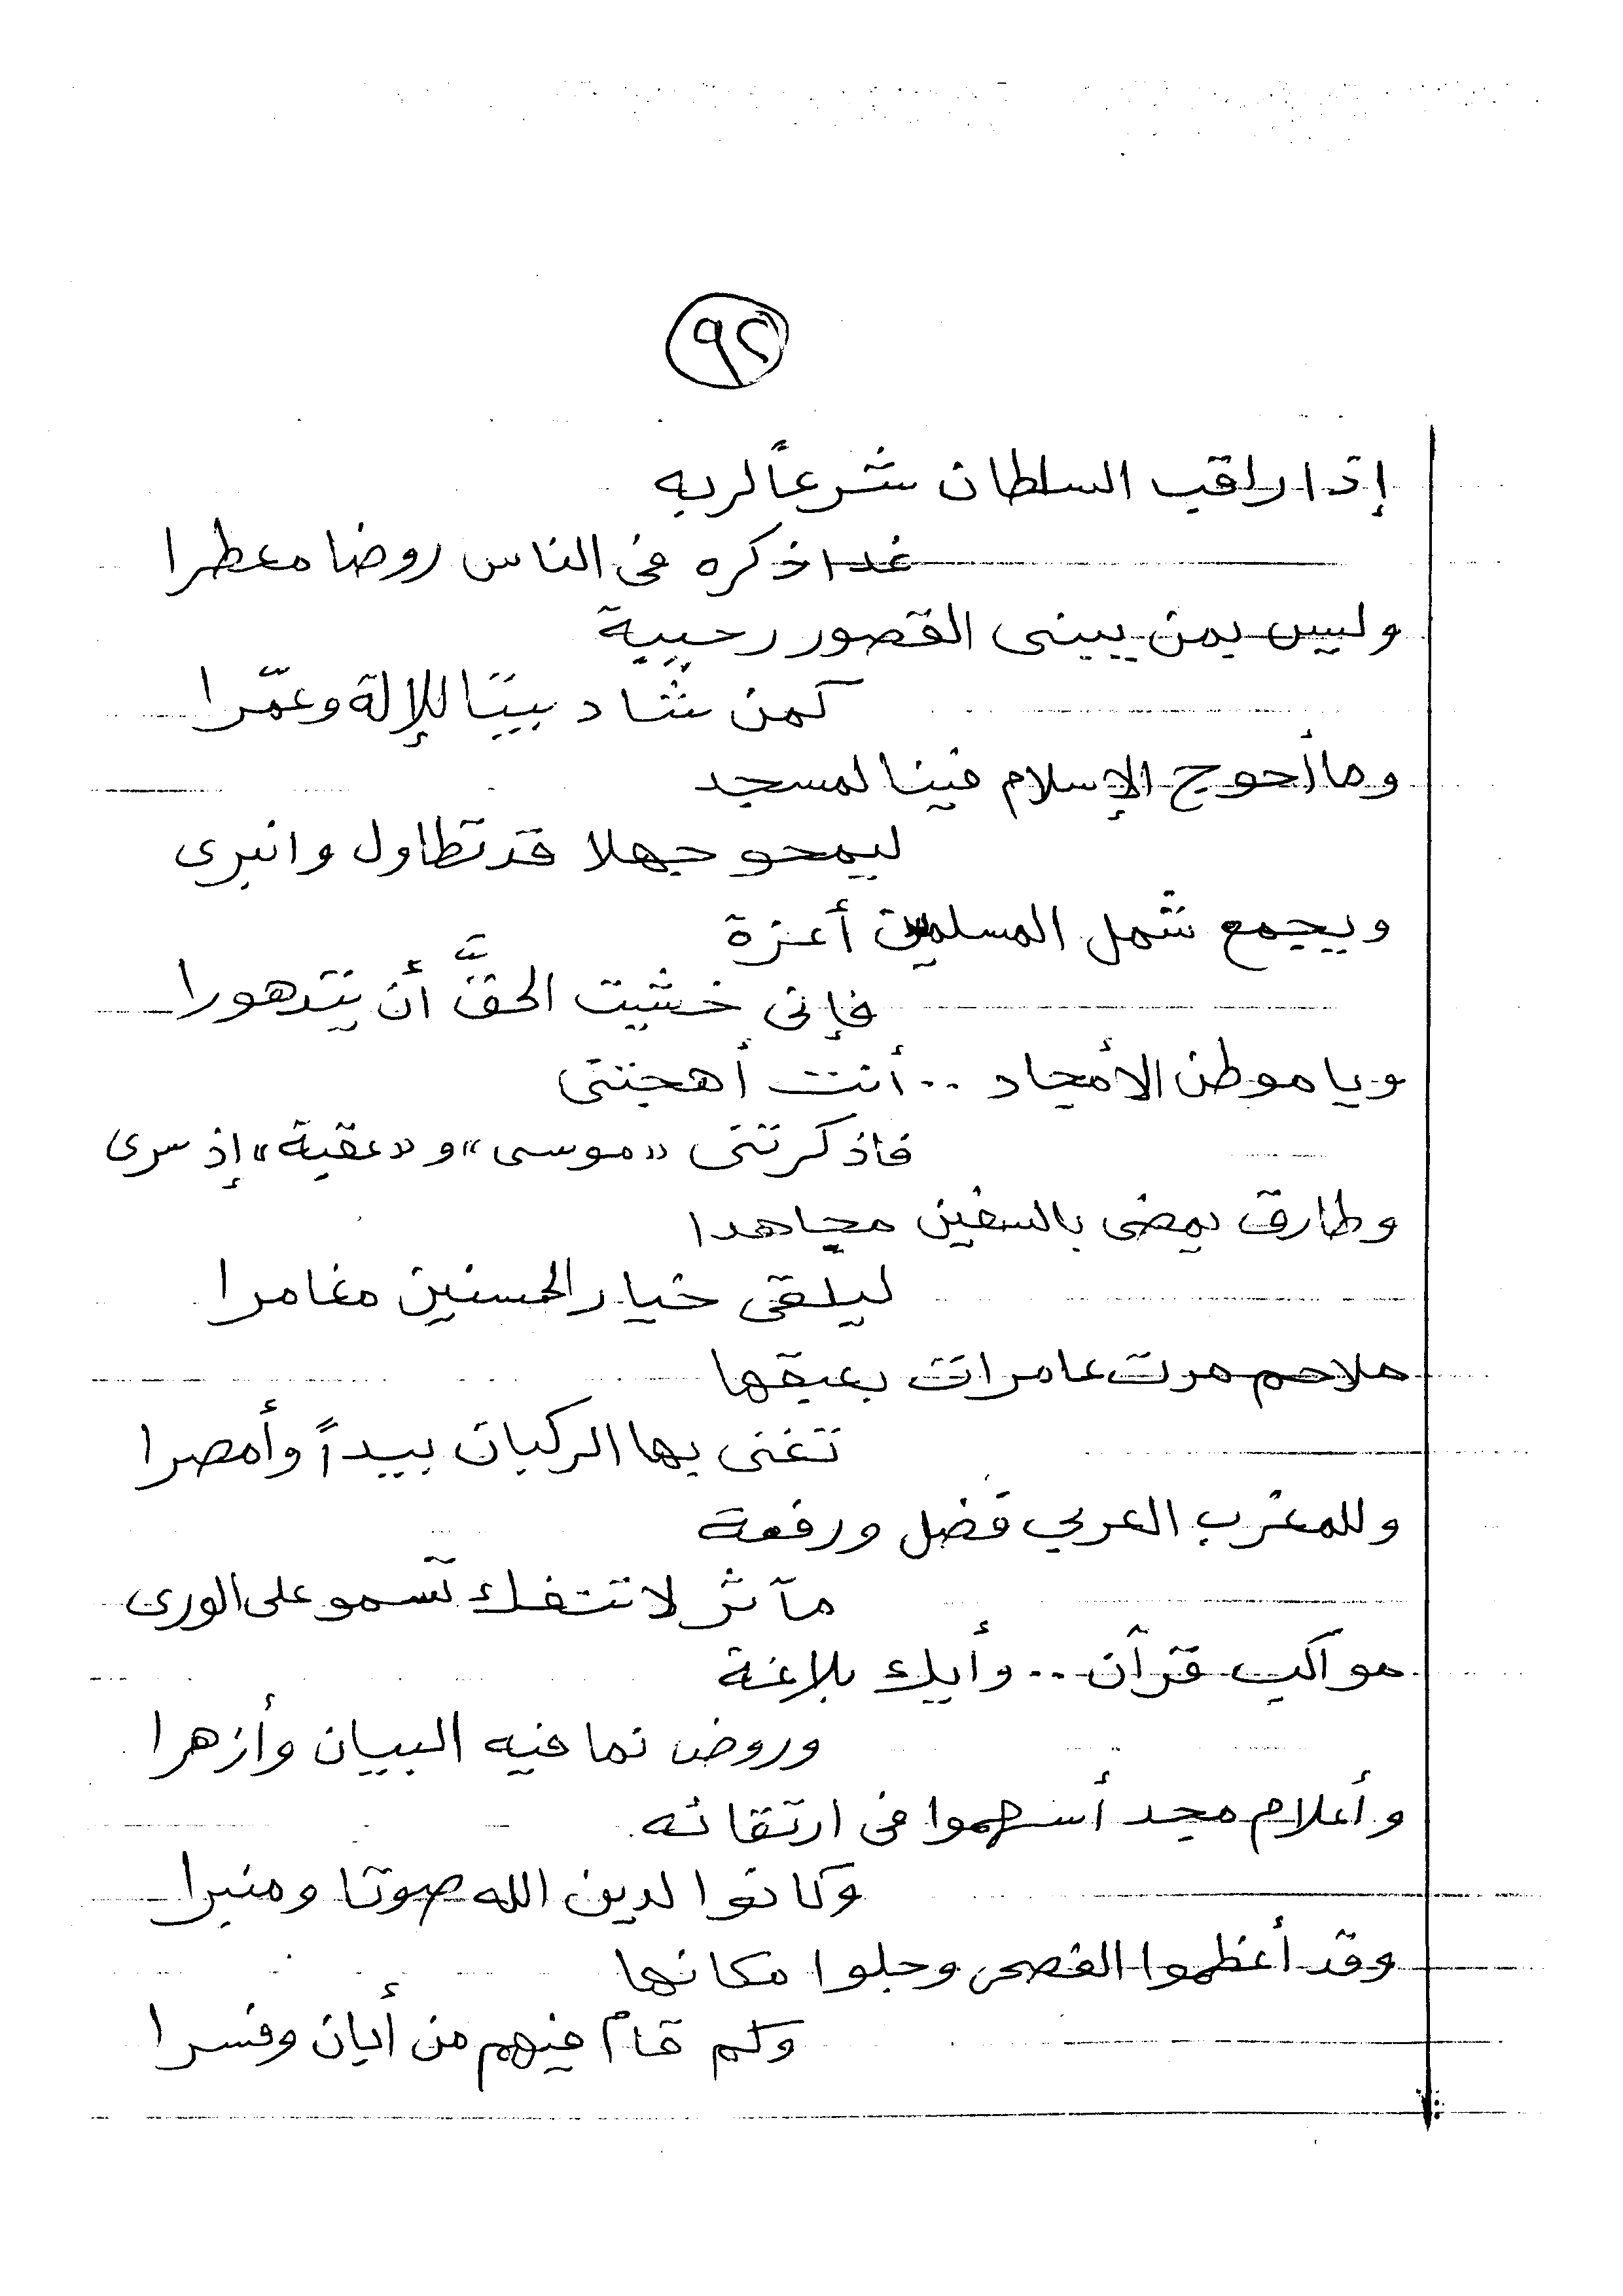 ٩٢
إذا راقب السلطان شرعاً لربه
غدا ذكره فى الناس روضا معطرا
وليس بمن يبنى القصور رحيبة
كمن شاد بيتا للإلة وعمّرا
وما أحوج الإسلام فينا لمسجد
ليمحو جهلا قد تطاول وانبرى
ويجمع شمل المسلمين أعزة
فإنى خشيت الحقَّ أن يتدهورا
ويا موطن الأمجاد .. أنت أهجتنى
فاذكرتنى «موسى» و «عقبة» إذ سرى
وطارق يمضى بالسفين مجاهدا
ليلقى خيار الحسنين مغامرا
ملاحم مرت عامرات بعبقها
تغنى بها الركبان بيداً وأمصرا
وللمغرب العربي فضل ورفعة
مآثر لا تنفك تسمو على الورى
مواكب قرآن .. وأيك بلاغة
وروض نما فيه البيان وأزهرا
وأعلام مجد أسهموا فى ارتقائه
وكانوا لدين الله صوتا ومنبرا
وقد أعظموا الفصحى وجلوا مكانها
وكم قام فيهم من أبان وفسرا